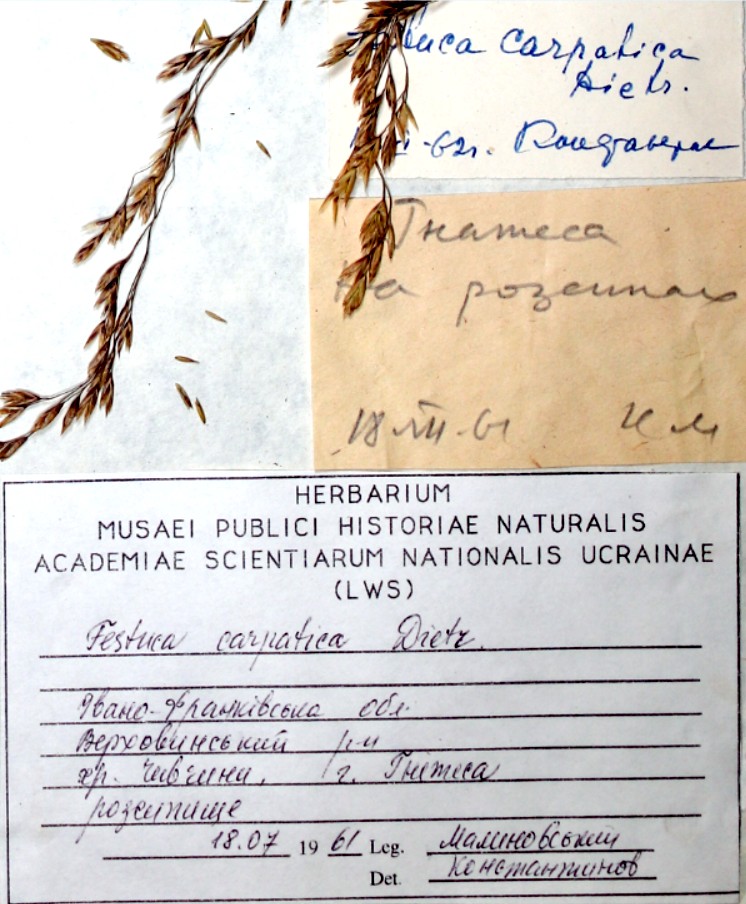 Festuca carpatica
Dietr.
-62г.
Гнатеса
на розсипах
18 VII-61 К М
HERBARIUM
MUSAEI PUBLICI HISTORIAE NATURALIS
ACADEMIAE SCIENTIARUM NATIONALIS UCRAINAE
(LWS)
Festuca carpatica Dietr.
Івано-Франківська обл.
Верховинський р-н
хр. Чивчини, г. Гнатеса
розсипище
18.07 1961 Leg. Малиновський
Det. Константинов